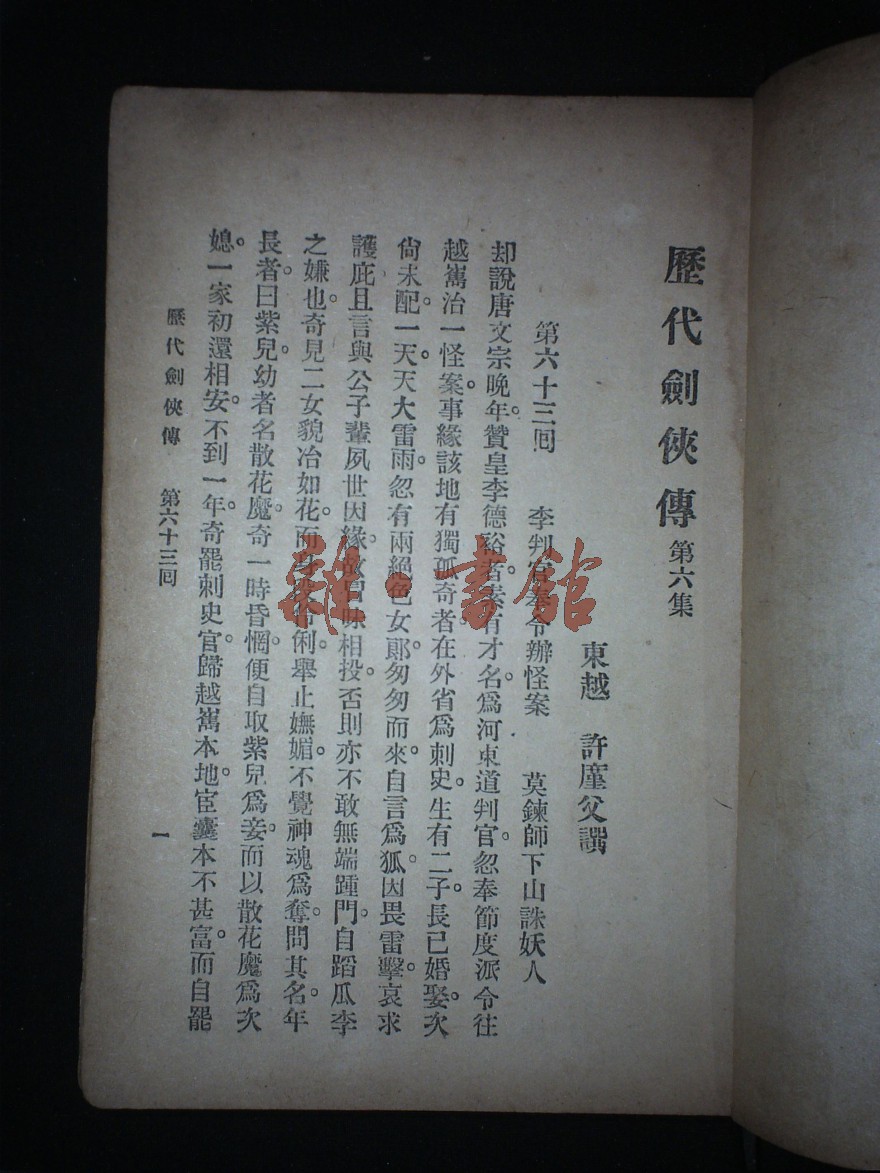 歷代劍俠傳第六集
東越 許廑父譔
第六十三囘 李判官奉令辦怪案 莫鍊師下山誅妖人
却說唐文宗晚年。贊皇李德裕者。素有才名。爲河東道判官。忽奉節度派令往
越嶲治一怪案。事緣該地有獨孤奇者。在外省爲刺史。生有二子。長已婚娶。次
尙未配。一天天大雷雨。忽有兩絕色女郞。匆匆而來。自言爲狐。因畏雷擊。哀求
護庇。且言與公子輩夙世因緣。故冒昧相投。否則亦不敢無端踵門。自蹈瓜李
之嫌也。奇見二女貌冶如花。而身伶俐。舉止嫵媚。不覺神魂爲奪。問其名。年
長者。曰紫兒。幼者名散花魔。奇一時昏惘。便自取紫兒爲妾。而以散花魔爲次
媳。一家初還相安。不到一年。奇罷刺史官。歸越嶲本地。宦囊本不甚富。而自罷
歷代劍俠傳 第六十三囘
一
雜·書館